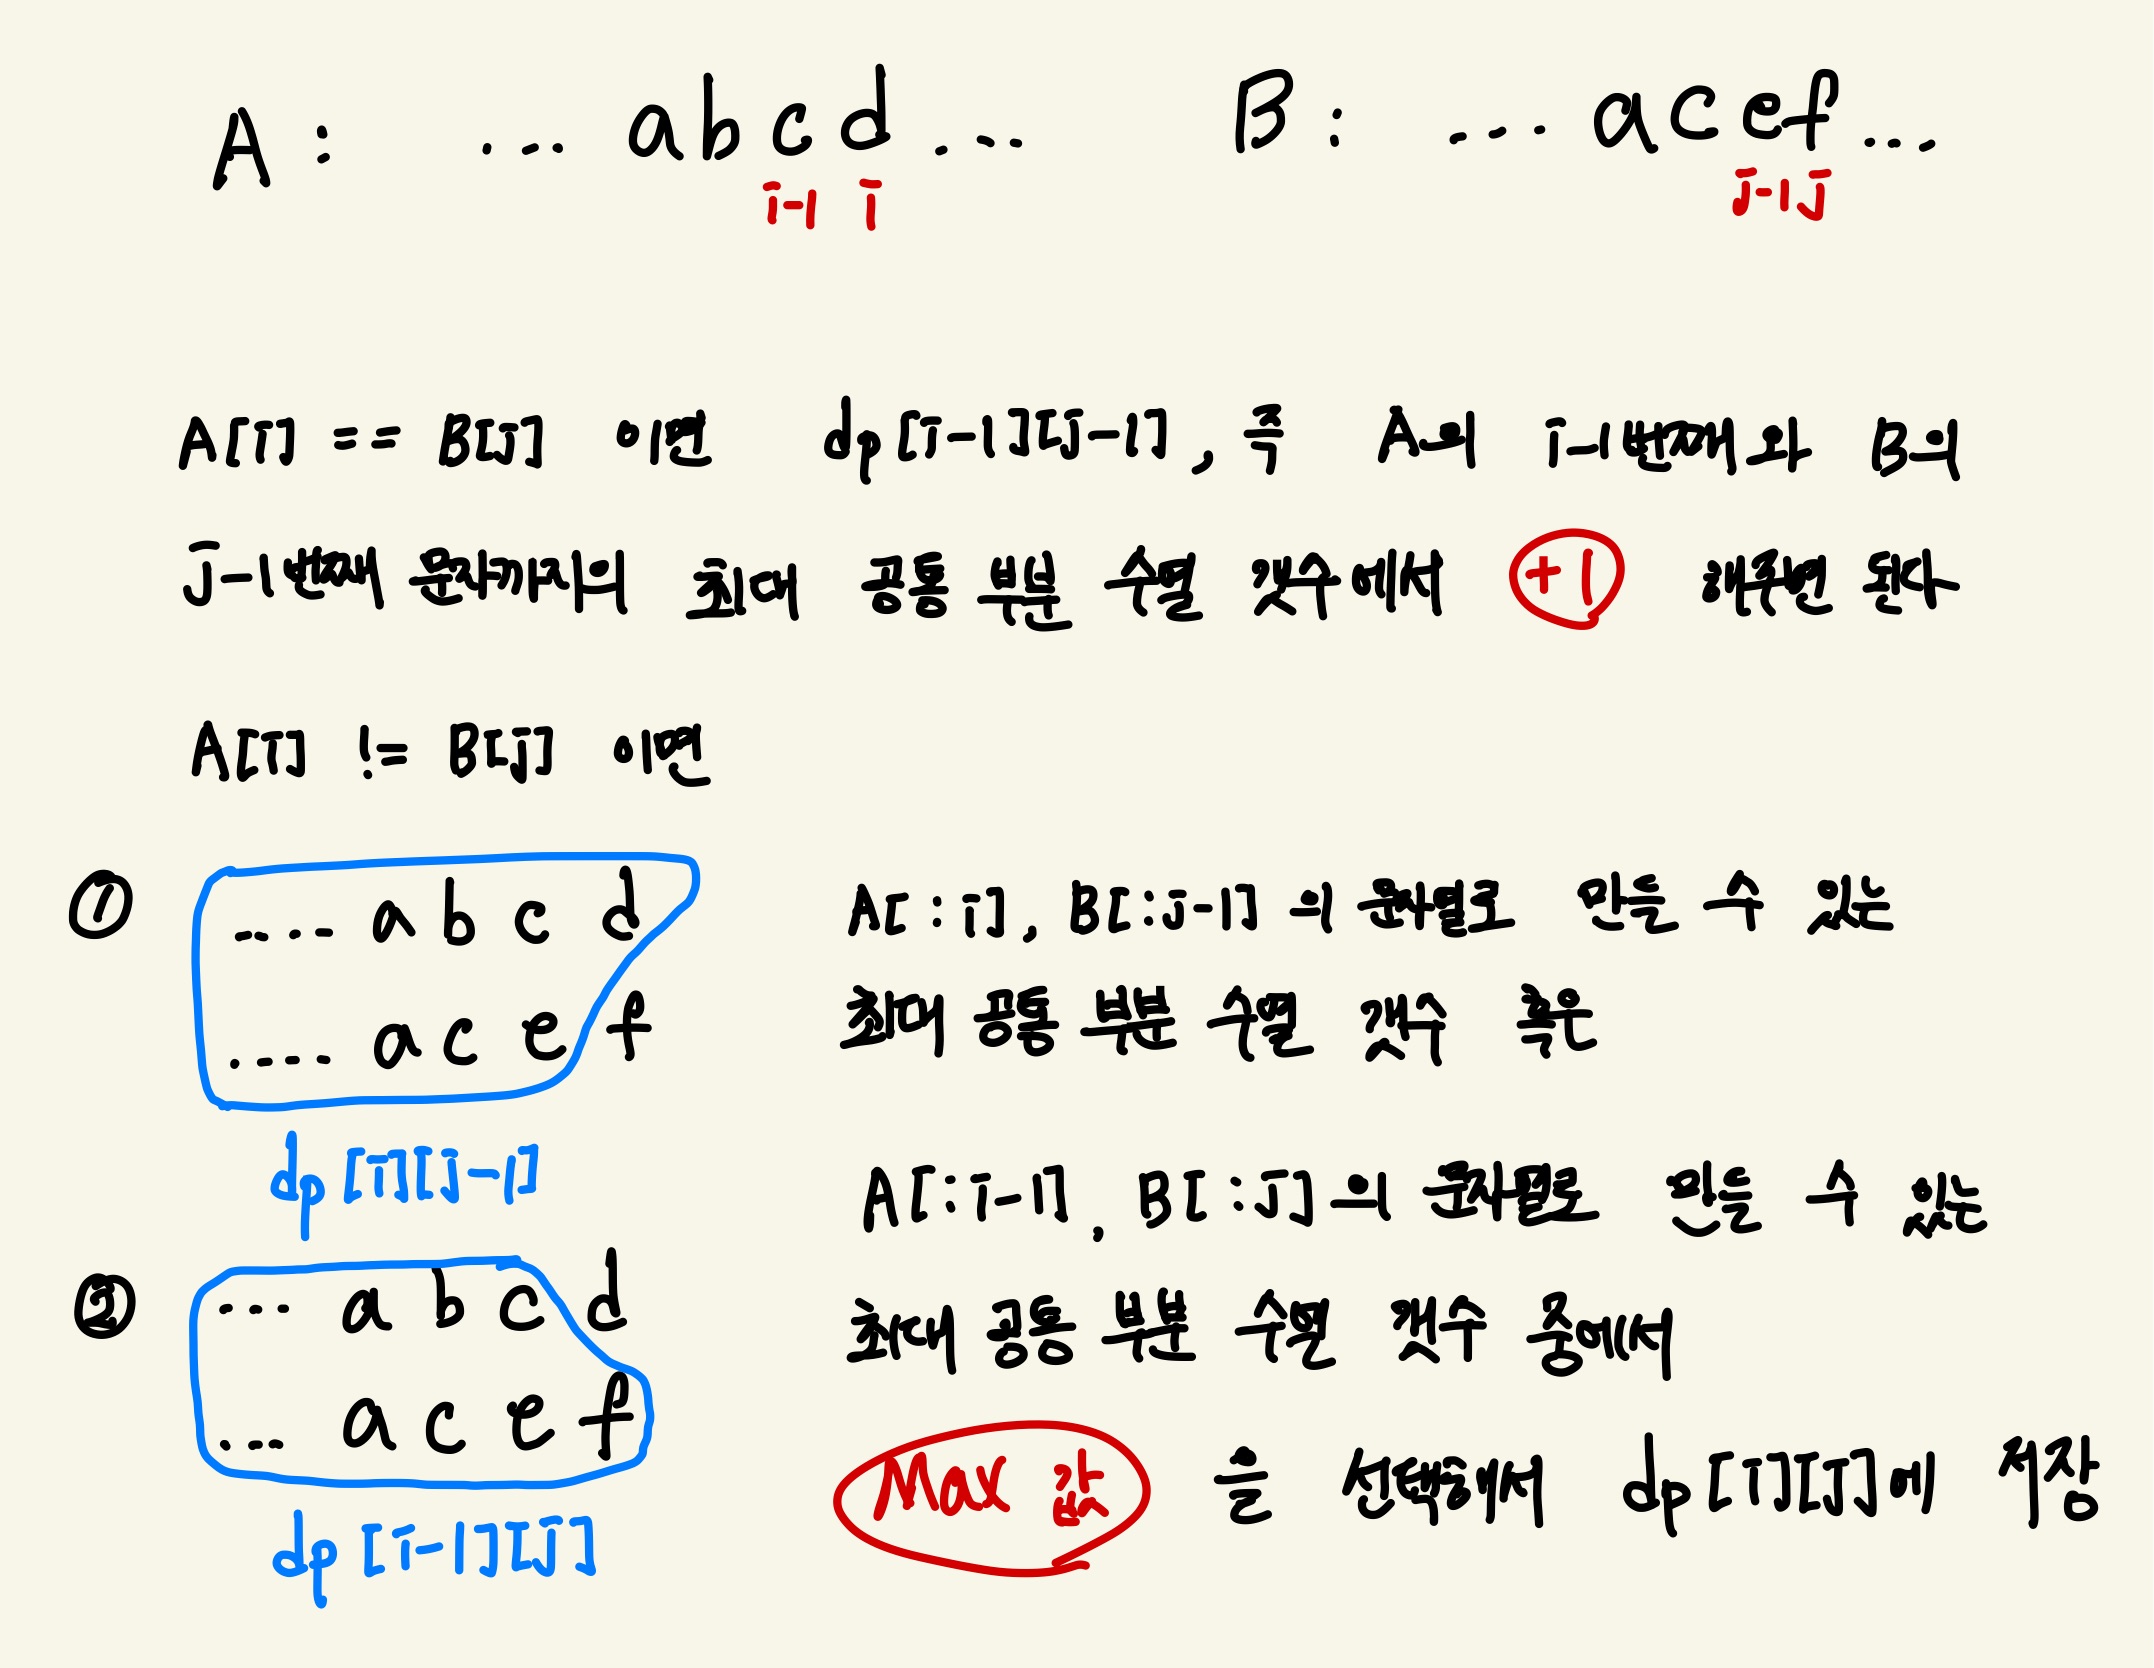 A : ... abcd ... B : ... acef ...
i-1 i j-1 j
A[i] == B[j] 이면 dp[i-1][j-1], 즉 A의 i-1번째와 B의
j-1번째 문자까지의 최대 공통 부분 수열 갯수에서 +1 해주면 된다
A[i] != B[j] 이면
① .... a b c d
.... a c e f
dp[i][j-1]
A[:i], B[:j-1] 의 문자열로 만들 수 있는
최대 공통 부분 수열 갯수 혹은
② ... a b c d
... a c e f
dp[i-1][j]
A[:i-1], B[:j]의 문자열로 만들 수 있는
최대 공통 부분 수열 갯수 중에서
Max 값 을 선택해서 dp[i][j]에 저장